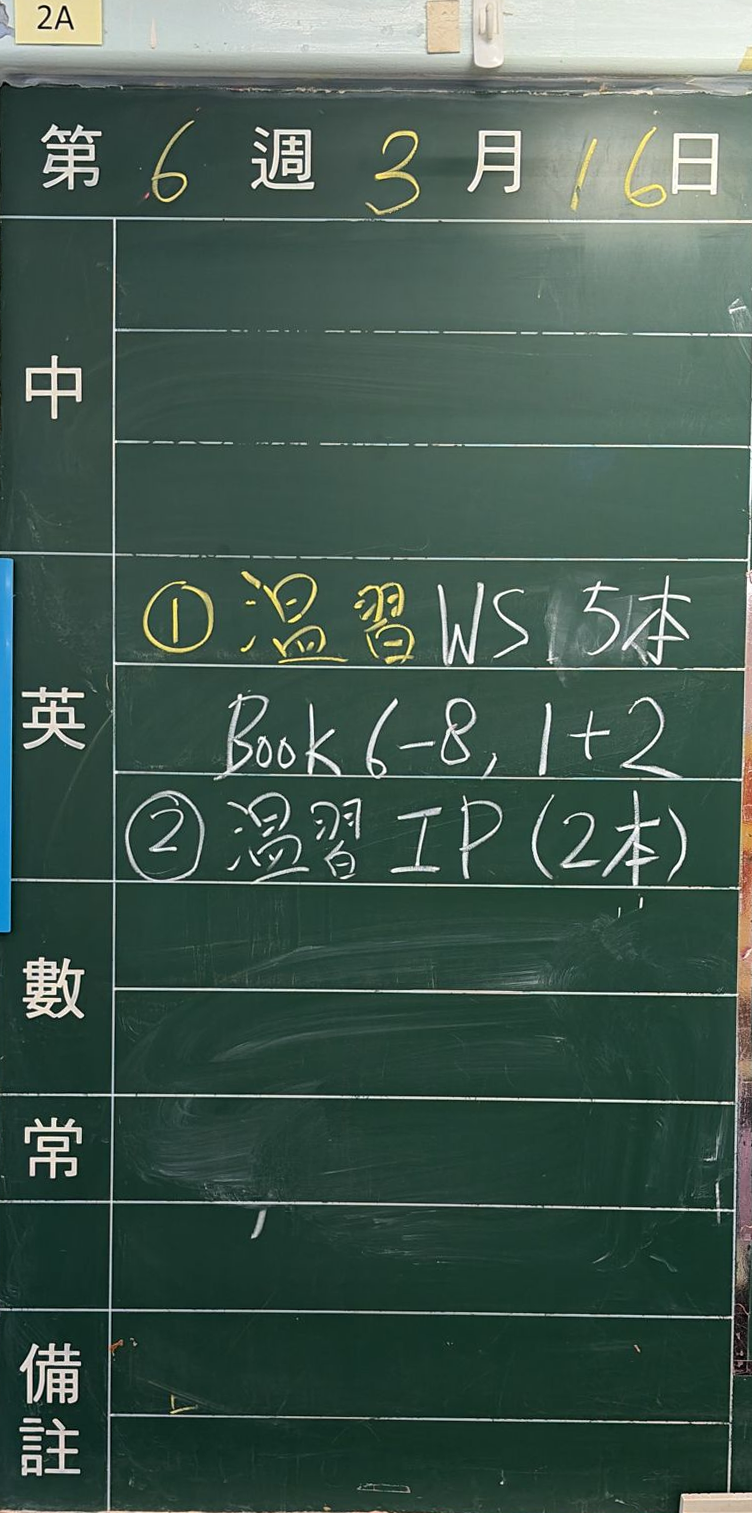 2A
第 6 週 3 月 16 日
中
英
① 溫習 WS 5本
Book 6-8, 1+2
② 溫習 IP (2本)
數
常
備註